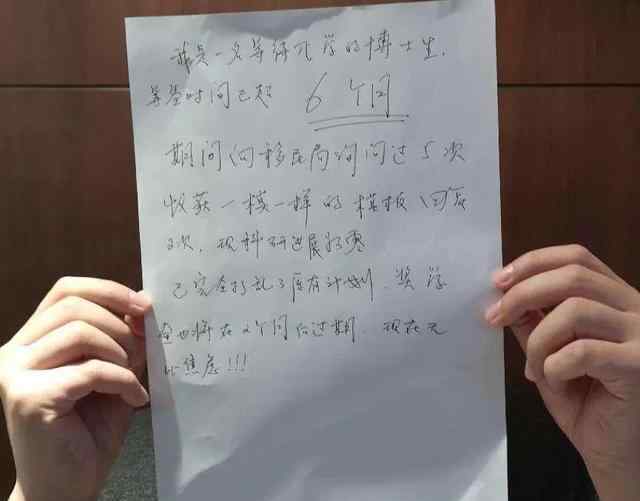 我是一名等待化学的博士生,
等签时间已超 6个月
期间向移民局询问过5次
收获一模一样的模板回复
2次. 现科研进展为零
已完全打乱了原有计划. 奖学
金也将在2个月后过期. 现在无
比焦虑!!!